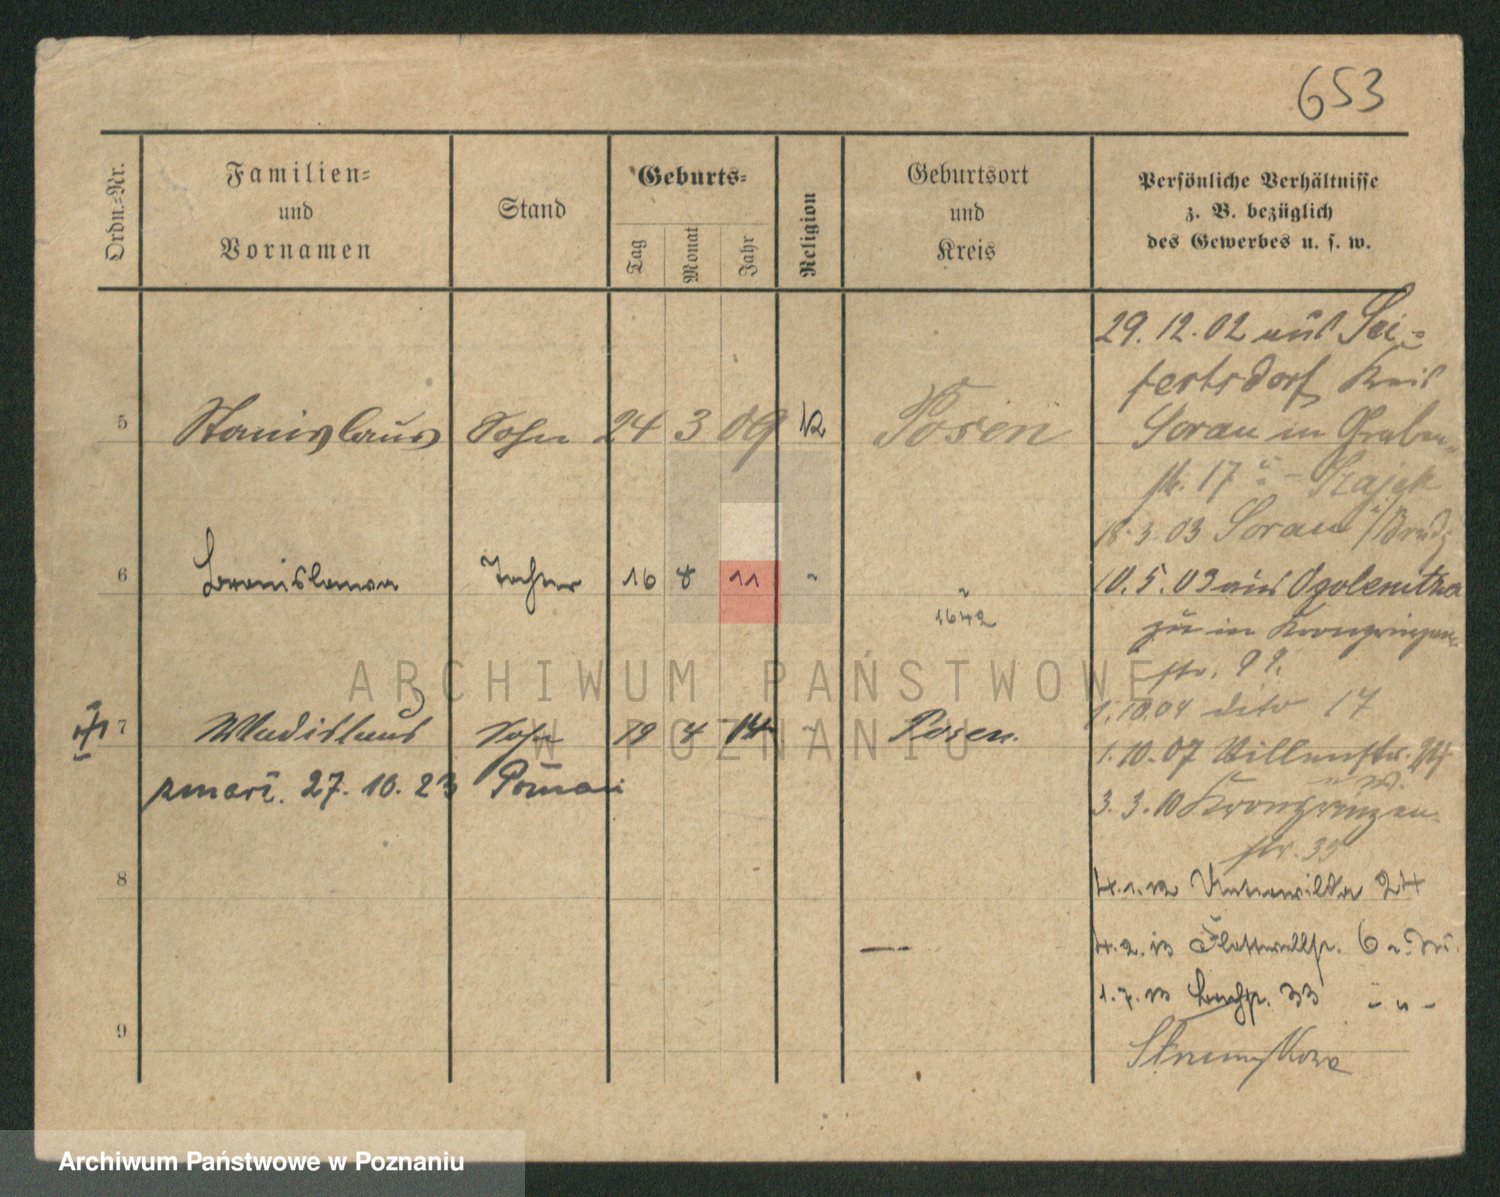 653
Ordn.-Nr.
Familien-
und
Vornamen
Stand
Geburts-
Tag
Monat
Jahr
Religion
Geburtsort
und
Kreis
Persönliche Verhältnisse
z. B. bezüglich
des Gewerbes u. s. w.
29.12.02 aus Sei-
fertsdorf Kreis
5 Stanislaus Sohn 24 3 09 Posen
Sorau in Graben
str. 17
18.3.03 Sorau
6 Bronislawa Tochter 16 8 11 "
10.5.03 aus
1642
zu in Kronprinzen
str. 99.
1.10.04 dito 17
7 Wladislaus Sohn 19 4 14 " Posen.
1.10.07 Villenstr.
zmarł. 27.10.23 Poznań
3.3.10 Kronprinzen-
str. 35
8
4.1.12 Unterwilda 24
4.2.13 Flottwellstr. 6
1.7.13 Bachstr. 33 " " "
9
ARCHIWUM PAŃSTWOWE
W POZNANIU
Archiwum Państwowe w Poznaniu